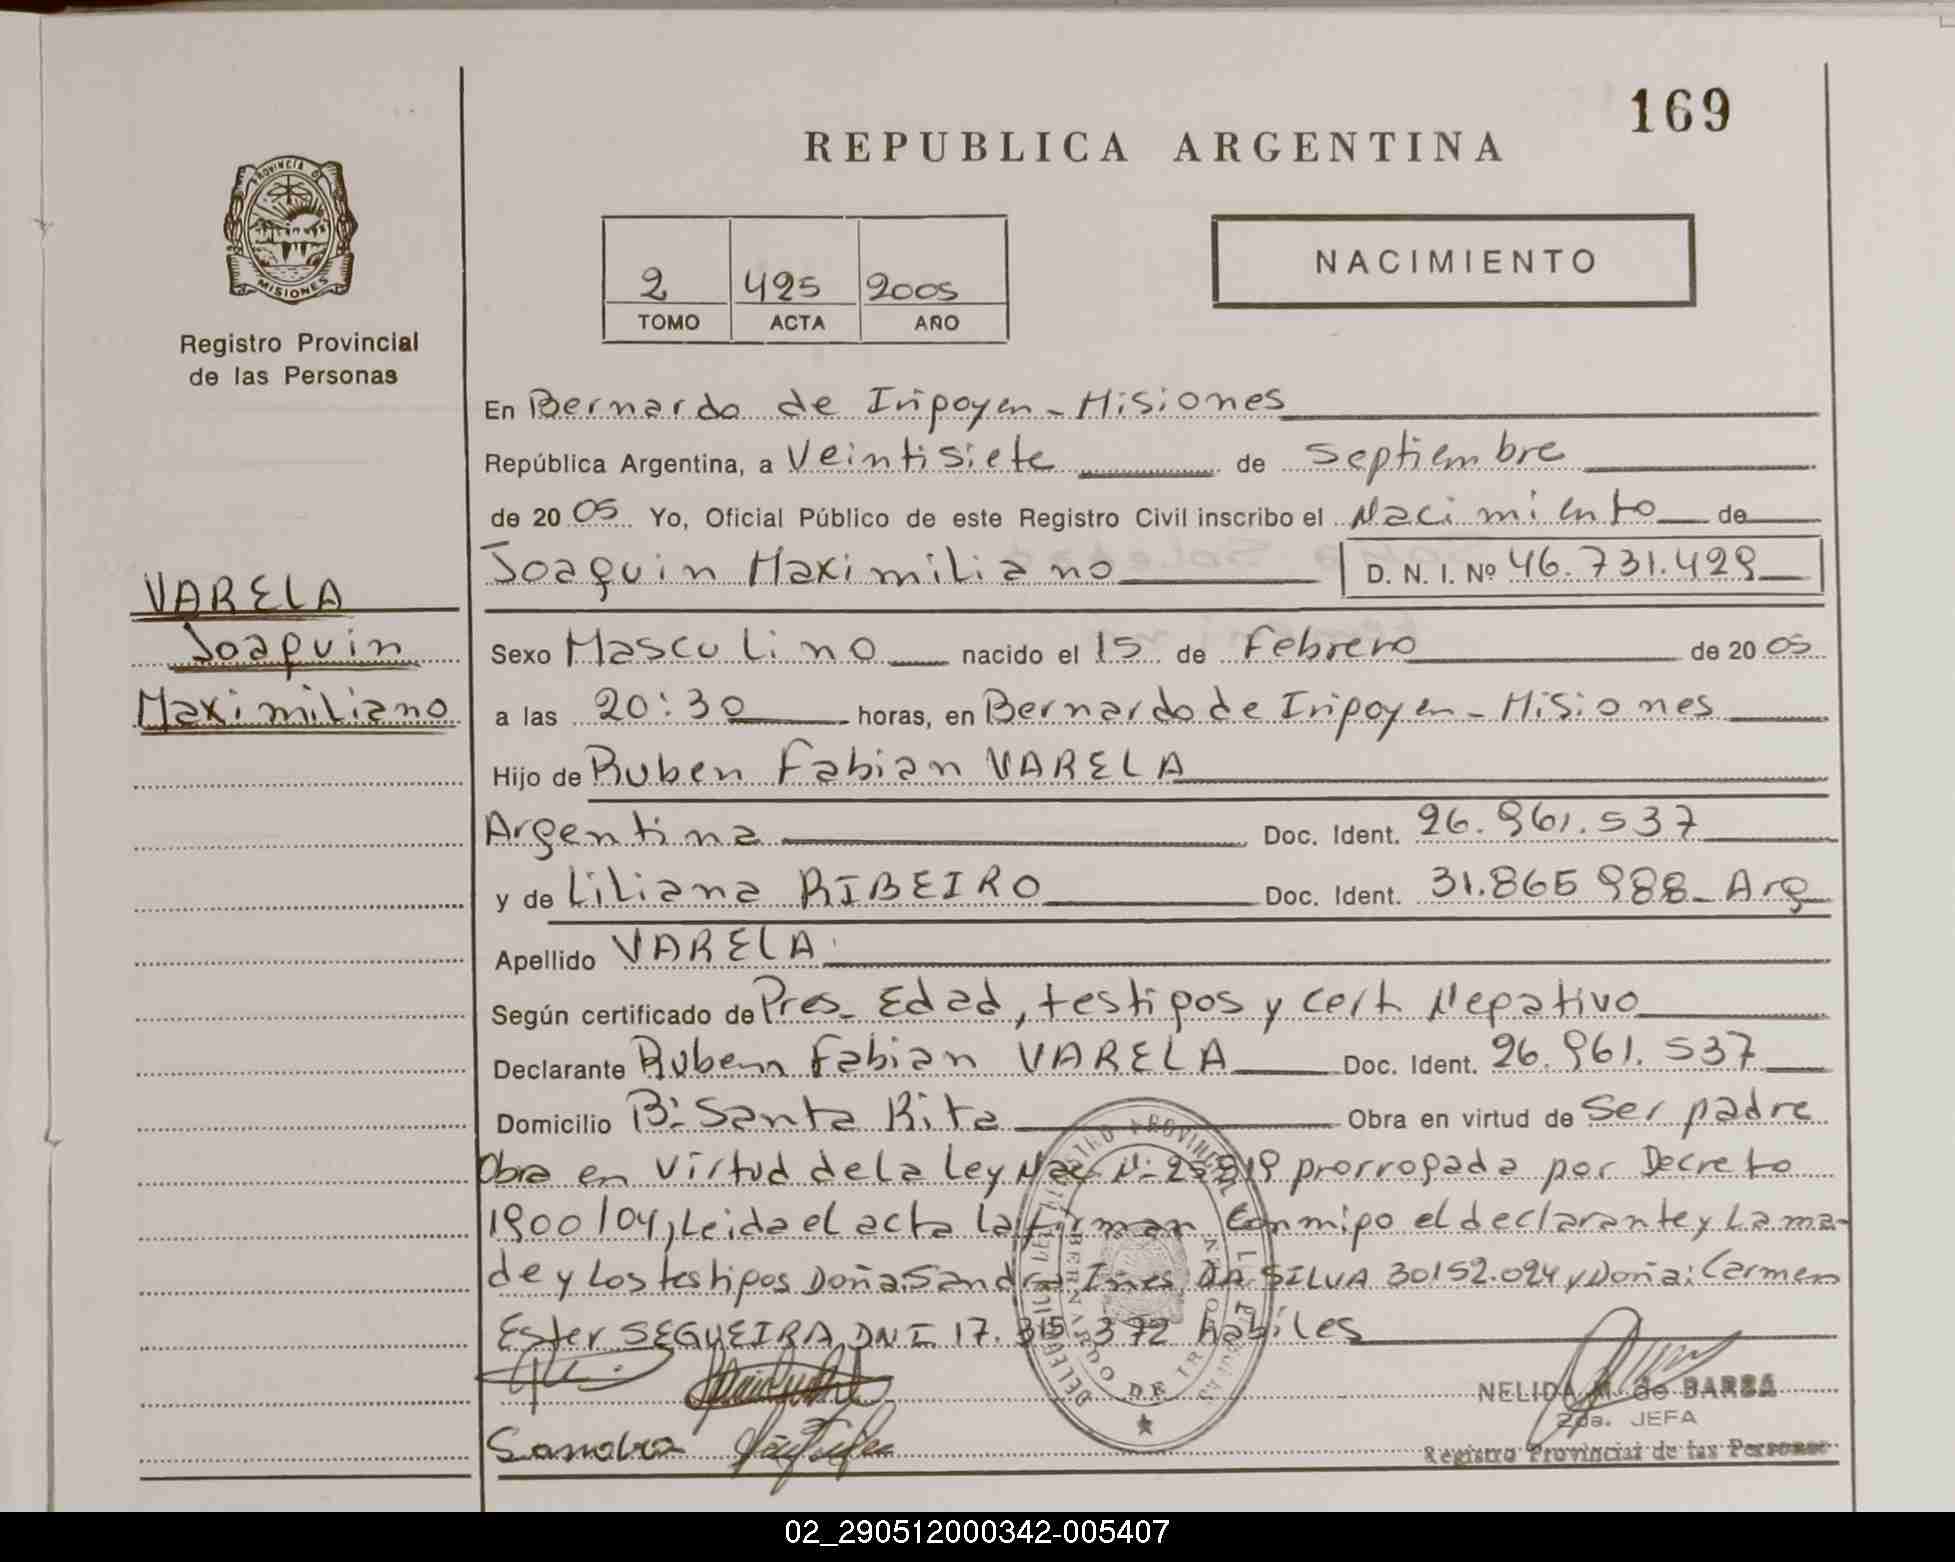 169
REPUBLICA ARGENTINA
PROVINCIA D
MISIONES
Registro Provincial
de las Personas
2 425 2005
TOMO ACTA AÑO
NACIMIENTO
En Bernardo de Iripoyen - Misiones
República Argentina, a Veintisiete de Septiembre
de 20 05 Yo, Oficial Público de este Registro Civil inscribo el Nacimiento de
Joaquin Maximiliano D. N. I. Nº 46.731.429
VARELA
Joaquin
Maximiliano
Sexo Masculino nacido el 15 de Febrero de 20 05
a las 20:30 horas, en Bernardo de Iripoyen - Misiones
Hijo de Ruben Fabian VARELA
Argentina Doc. Ident. 26.961.537
y de Liliana RIBEIRO Doc. Ident. 31.865 988 - Arg
Apellido VARELA
Según certificado de Pres. Edad, testigos y cert Negativo
Declarante Ruben Fabian VARELA Doc. Ident. 26.961.537
Domicilio Bº Santa Rita Obra en virtud de Ser padre
Obra en virtud de la Ley Nac Nº 25819 prorrogada por Decreto
1900/04, Leida el acta la firman conmigo el declarante y la ma-
de y los testigos Doña Sandra Ines DA SILVA 30152.024 y Doña: Carmen
Ester SEGUEIRA DNI 17.315.372 habiles
Sandra
NELIDA M. de BARBA
2da. JEFA
Registro Provincial de las Personas
BERNARDO DE IRIGOYEN
02_290512000342-005407